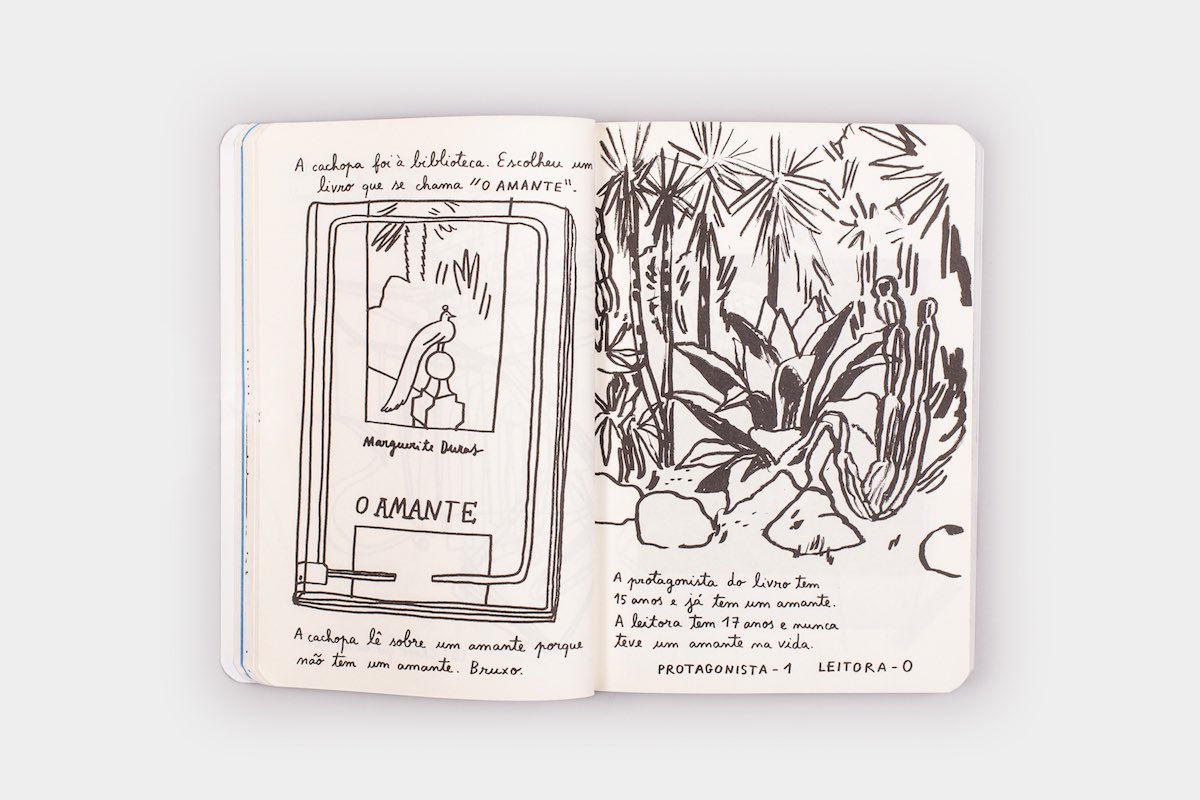 A cachopa foi à biblioteca. Escolheu um
livro que se chama "O AMANTE".
Marguerite Duras
O AMANTE
A cachopa lê sobre um amante porque
não tem um amante. Bruxo.
A protagonista do livro tem
15 anos e já tem um amante.
A leitora tem 17 anos e nunca
teve um amante na vida.
PROTAGONISTA - 1 LEITORA - 0